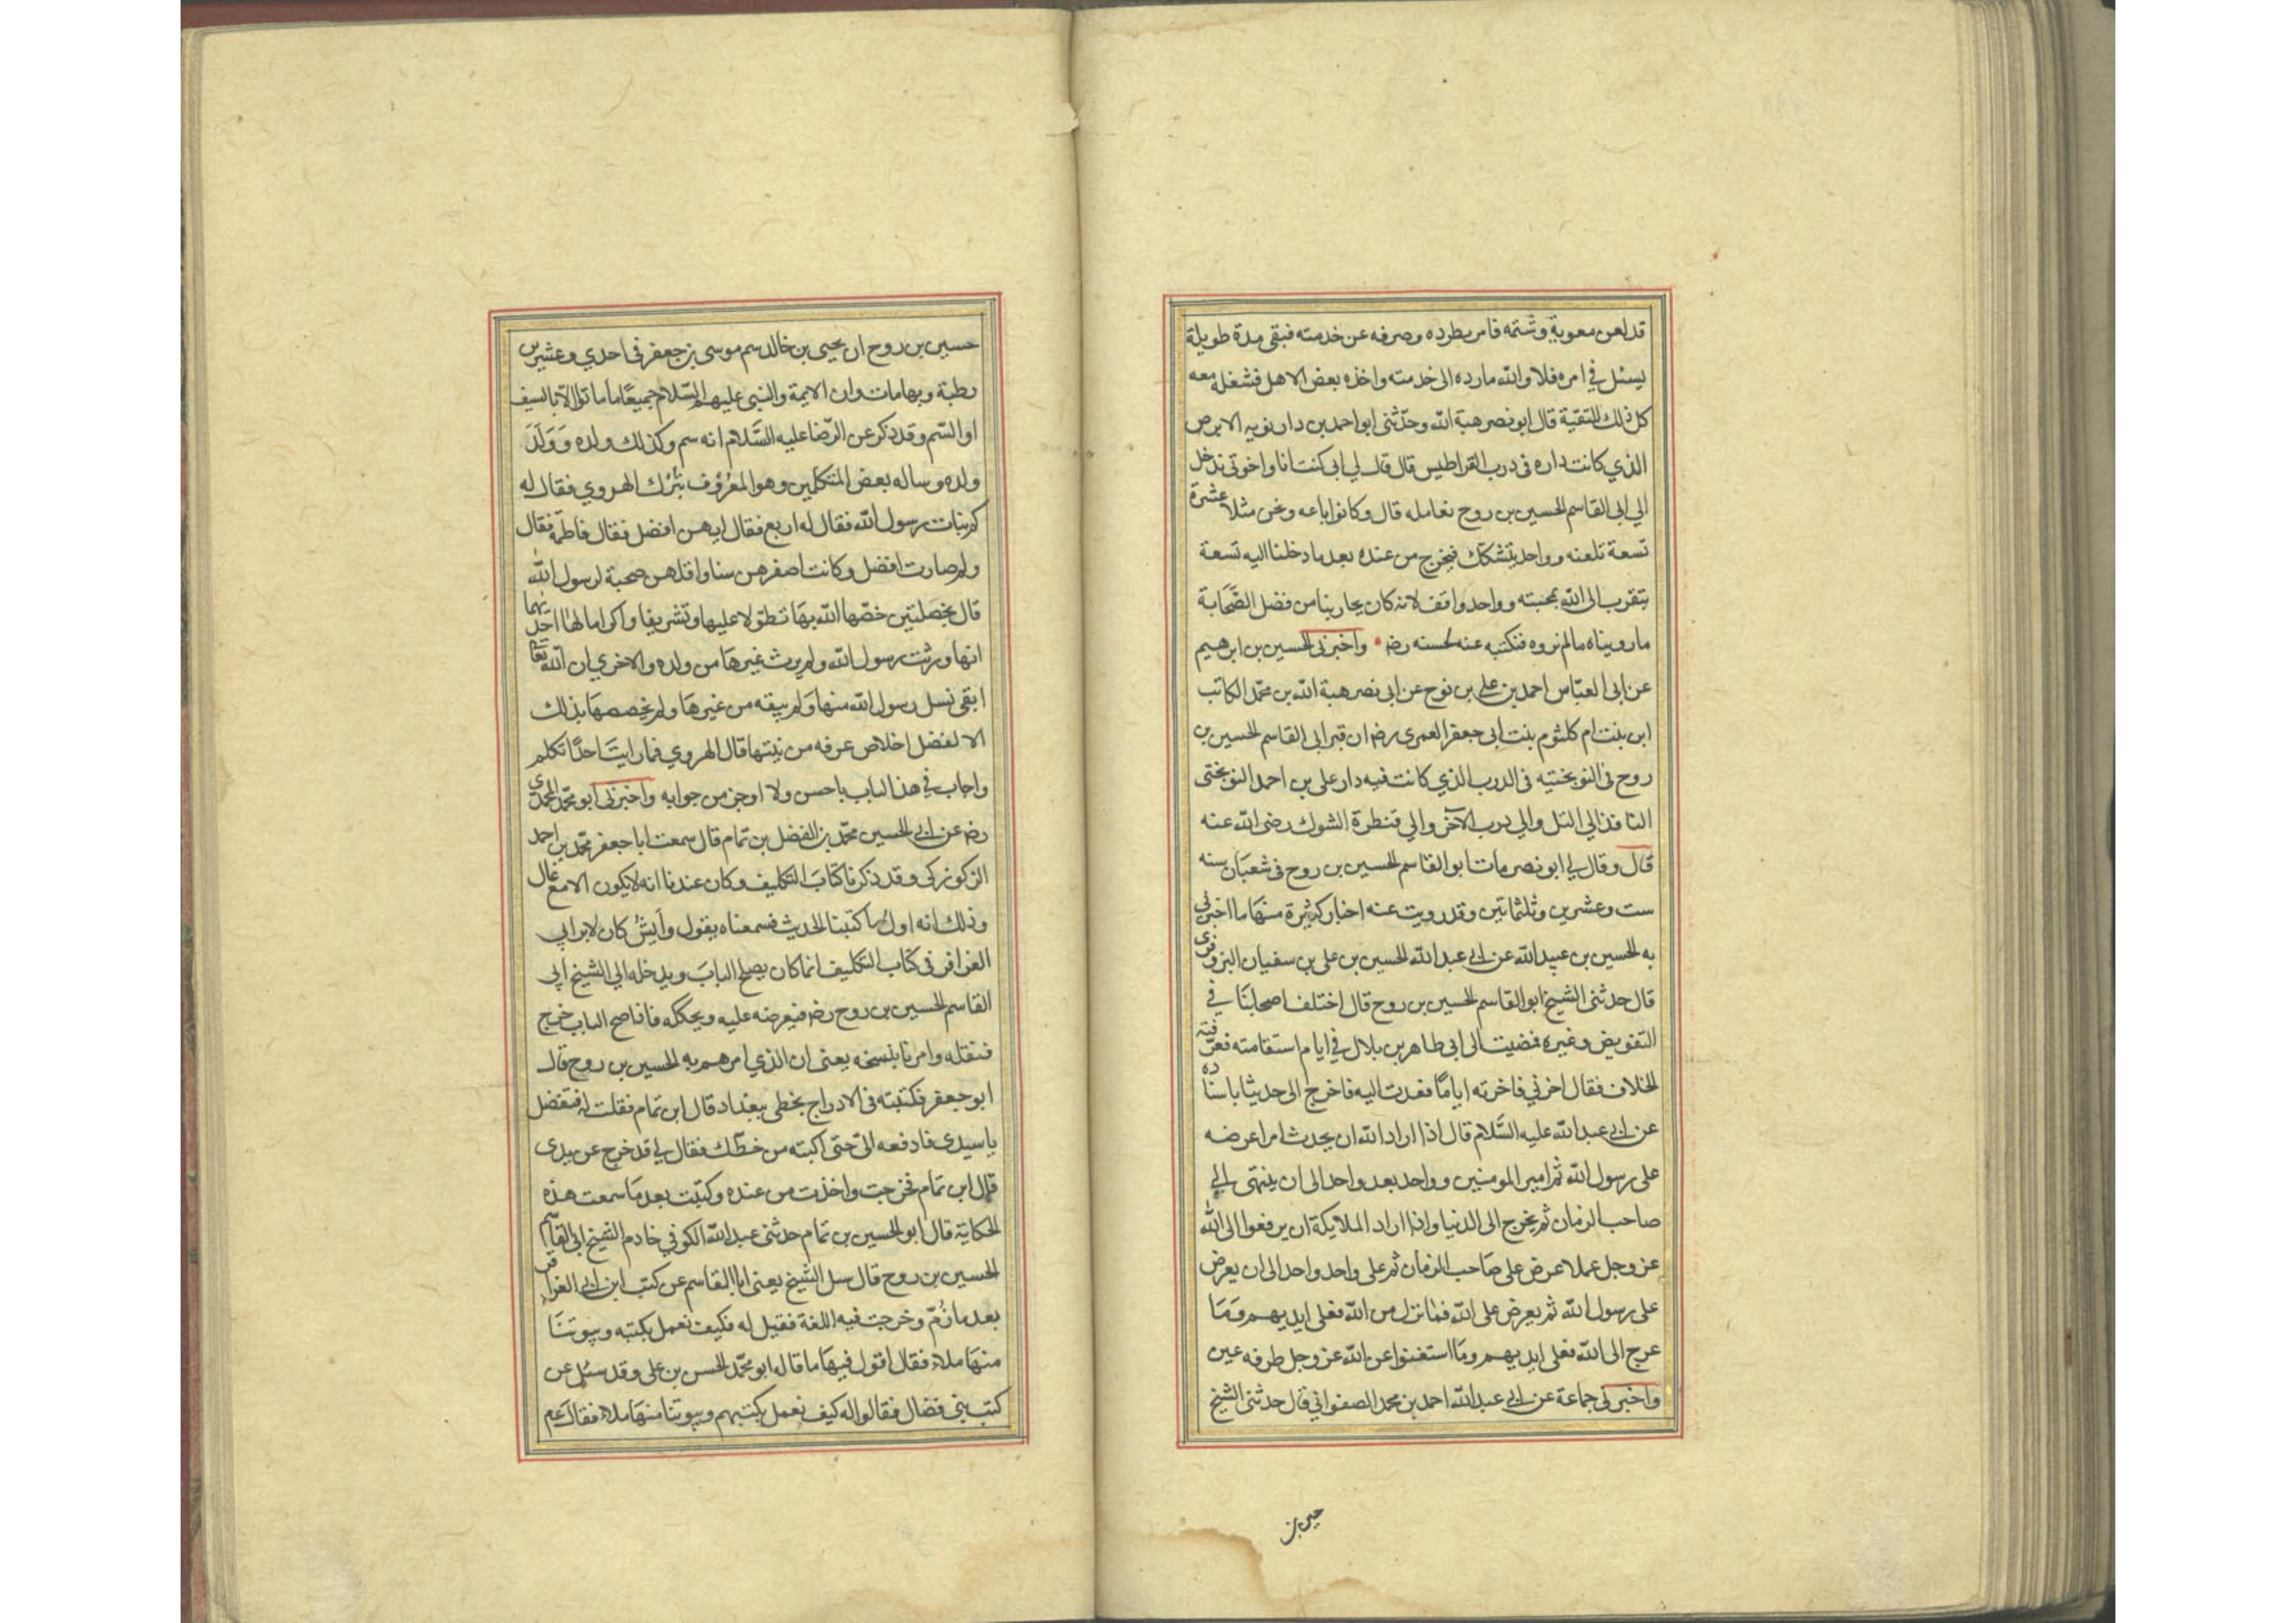 قد لعن معوية وشتمه فامر بطرده وصرفه عن خدمته فبقى مدة طويلة
يسئل في امره فلا والله مارده الى خدمته واخذه بعض الاهل فشغله معه
كل ذلك للتقية قال ابو نصر هبة الله وحدّثنى ابو احمد بن دارنويه الابرص
الذي كانت داره فى درب القراطيس قال قال لي ابى كنت انا واخوتى ندخل
الي ابى القاسم الحسين بن روح نعامله قال وكانوا باعه ونحن مثلا عشرة
تسعة تلعنه وواحد يتشكك فيخرج من عنده بعد ما دخلنا اليه تسعة
يتقرب الى الله بمحبته وواحد واقف لانه كان يجارينا من فضل الصَّحَابة
ما رويناه مالم نروه فنكتبه عنه لحسنه رضه واخبرنى الحسين بن ابرهيم
عن ابى العبّاس احمد بن على بن نوح عن ابى نصر هبة الله بن محمّد الكاتب
ابن بنت ام كلثوم بنت ابى جعفر العمرى رضه ان قبر ابى القاسم الحسين بن
روح فى النوبختيه فى الدرب الذي كانت فيه دار على بن احمد النوبختى
النافذ الي التل والي درب الآخر والي قنطرة الشوك رضى الله عنه
قال وقال لي ابو نصر مات ابو القاسم الحسين بن روح فى شعبَان سنه
ست وعشرين وثلثمائتين وقد رويت عنه اخبار كثيرة منهَا ما اخبرنى
به الحسين بن عبيد الله عن ابى عبد الله الحسين بن على بن سفيان البزوفرى
قال حدثنى الشيخ ابو القاسم الحسين بن روح قال اختلف اصحابنَا في
التفويض وغيره فمضيت الى ابى طاهر بن بلال في ايام استقامته فعرّفته
الخلاف فقال اخرني فاخرته ايامًا فعدت اليه فاخرج الى حديثا باسناده
عن ابى عبد الله عليه السَّلام قال اذا اراد الله ان يحدث امرا عرضه
على رسول الله ثم امير المومنين وواحد بعد واحد الى ان ينتهى الي
صاحب الزمان ثم يخرج الى الدنيا واذا اراد الملايكة ان يرفعوا الى الله
عز وجل عملا عرض على صَاحب الزمان ثم على واحد واحد الى ان يعرض
على رسول الله ثم يعرض على الله فما نزل من الله فعلى ايديهم ومَا
عرج الى الله فعلى ايديهم ومَا استغنوا عن الله عز وجل طرفه عين
واخبرنى جماعة عن ابى عبد الله احمد بن محمد الصفواني قال حدثنى الشيخ
حسين بن
حسين بن روح ان يحيى بن خالد سم موسى بن جعفر فى احدي وعشرين
رطبة وبها مات وان الايمة والنبى عليهم السّلام جميعًا ما ماتوا الا بالسيف
او السّم وقد ذكر عن الرّضا عليه السَّلام انه سم وكذلك ولده وَوَلَدَ
ولده وساله بعض المتكلمين وهو المعرُوف بتُرْك الهروي فقال له
كم بنات رسول الله فقال له اربع فقال ايهن افضل فقال فاطمة فقال
ولم صارت افضل وكانت اصغرهن سنا واقلهن صحبة لرسول الله
قال بخصلتين خصّها الله بهَا تطوّلا عليها وتشريفا واكراما لهَا احديهما
انها ورثت رسول الله ولم يرث غيرهَا من ولده والاخري ان الله تعَا
ابقى نسل رسول الله منها ولم يبقه من غيرهَا ولم يخصصهَا بذلك
الا لفضل اخلاص عرفه من نيتها قال الهروي فما رايتَ احدًا تكلم
واجاب في هذا الباب باحسن ولا اوجز من جوابه واخبرنى ابو محمّد المحمدي
رضه عن ابى الحسين محمّد بن الفضل بن تمام قال سمعت ابا جعفر محمّد بن احمد
الزكوزكى وقد ذكرنا كتَابَ التكليف وكان عندنا انه لا يكون الا مع غال
وذلك انه اول ما كتبنا الحديث فسمعناه يقول وايشُ كان لابن ابي
العزاقر فى كتاب التكليف انما كان يصلح البابَ ويدخله الي الشيخ ابى
القاسم الحسين بن روح رضه فيعرضه عليه ويحككه فاذا صح الباب خرج
فنقله وامرنا بنسخه يعنى ان الذي امرهم به الحسين بن روح قال
ابو جعفر فكتبته فى الادراج بخطى ببغداد قال ابن تمام فقلت له فتفضل
يا سيدى فادفعه الىّ حتى اكتبه من خطّك فقال لي قد خرج عن يدى
قال ابن تمام فخرجت واخذت من عنده وكتبت بعد مَا سمعت هذه
الحكاية قال ابو الحسين بن تمام حدثنى عبد الله الكوفي خادم الشيخ ابى القاسم
الحسين بن روح قال سل الشيخ يعنى ابا القاسم عن كتب ابن ابى العزاقر
بعد ما ذُمّ وخرجت فيه اللغة فقيل له فكيف نعمل بكتبه وبيوتنَا
منهَا ملاء فقال اقول فيهَا ما قاله ابو محمّد الحسن بن على وقد سئل عن
كتب بنى فضال فقالوا له كيف نعمل بكتبهم وبيوتنا منهَا ملاء فقال عم